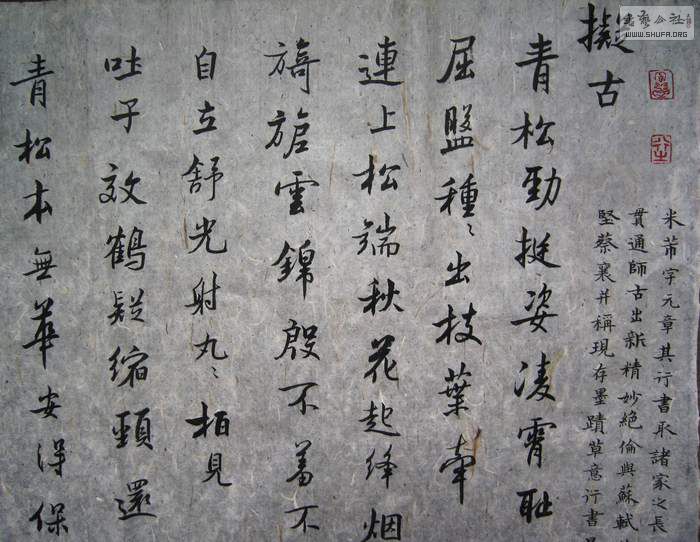 書藝公社
WWW.SHUFA.ORG
擬古
青松勁挺姿凌霄耻
屈盤種〻出枝葉牽
連上松端秋花起絳烟
旖旎雲錦殷不羞不
自立舒光射丸〻柏見
吐子效鶴疑縮頸還
青松本無華安得保
米芾字元章其行書承諸家之長
貫通師古出新精妙絕倫與蘇軾
堅蔡襄并稱現存墨蹟草意行書